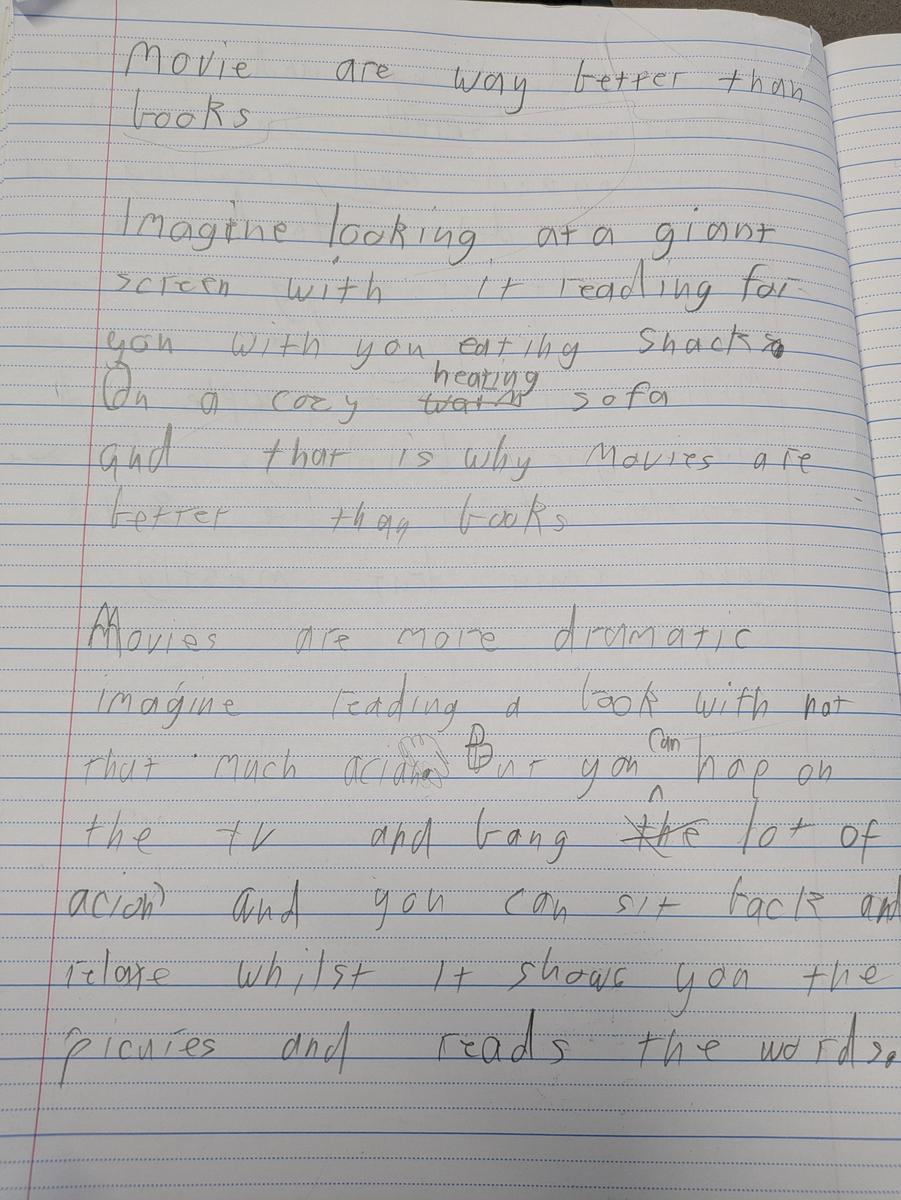 Movie are way better than
books
Imagine looking at a giant
screen with it reading for
you with you eating snacks
On a cozy heating sofa
and that is why movies are
better than books
Movies are more dramatic
imagine reading a book with not
that much acion But you can hop on
the tv and bang lot of
acion and you can sit back and
relaxe whilst it shows you the
picuies and reads the words.